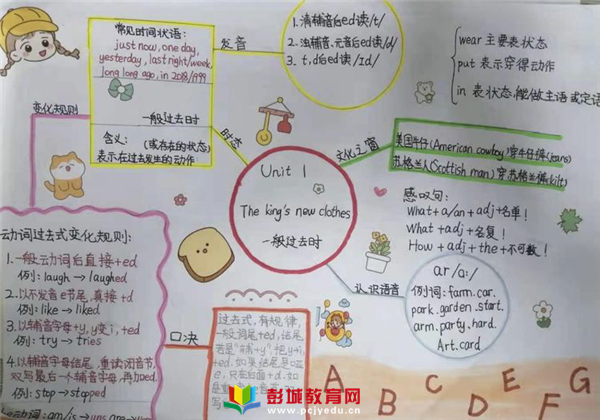 常见时间状语:
just now, one day,
yesterday, last night/week,
long long ago, in 2018/1999
一般过去时
含义: (或存在的状态)
表示在过去发生的动作
变化规则
发音
1.清辅音后ed读/t/
2.浊辅音、元音后ed读/d/
3. t,d后ed读/ɪd/
wear 主要表状态
put 表示穿得动作
in 表状态,能做主语或定语
时态
Unit 1
The king's new clothes
一般过去时
文化之窗
美国牛仔(American cowboy)穿牛仔裤(jeans)
苏格兰人(Scottish man)穿苏格兰裙(kilt)
感叹句:
What+a/an+adj+名单!
What+adj+名复!
How+adj+the+不可数!
认识语音
ar/a:/
例词: farm.car.
park.garden.start.
arm.party.hard.
Art.card
动词过去式变化规则:
1.一般动词后直接+ed
例: laugh→laughed
2.以不发音e节尾,直接+d
例: like→liked
3.以辅音字母+y,y变i,+ed
例: try→tries
4.以辅音字母结尾,重读闭音节,
双写最后一个辅音字母,再加ed.
例: stop→stopped
口决
过去式,有规律,
一般词尾+ed,
+ed,如果结尾
A B C D E F G
彭城教育网
www.pcjyedu.cn